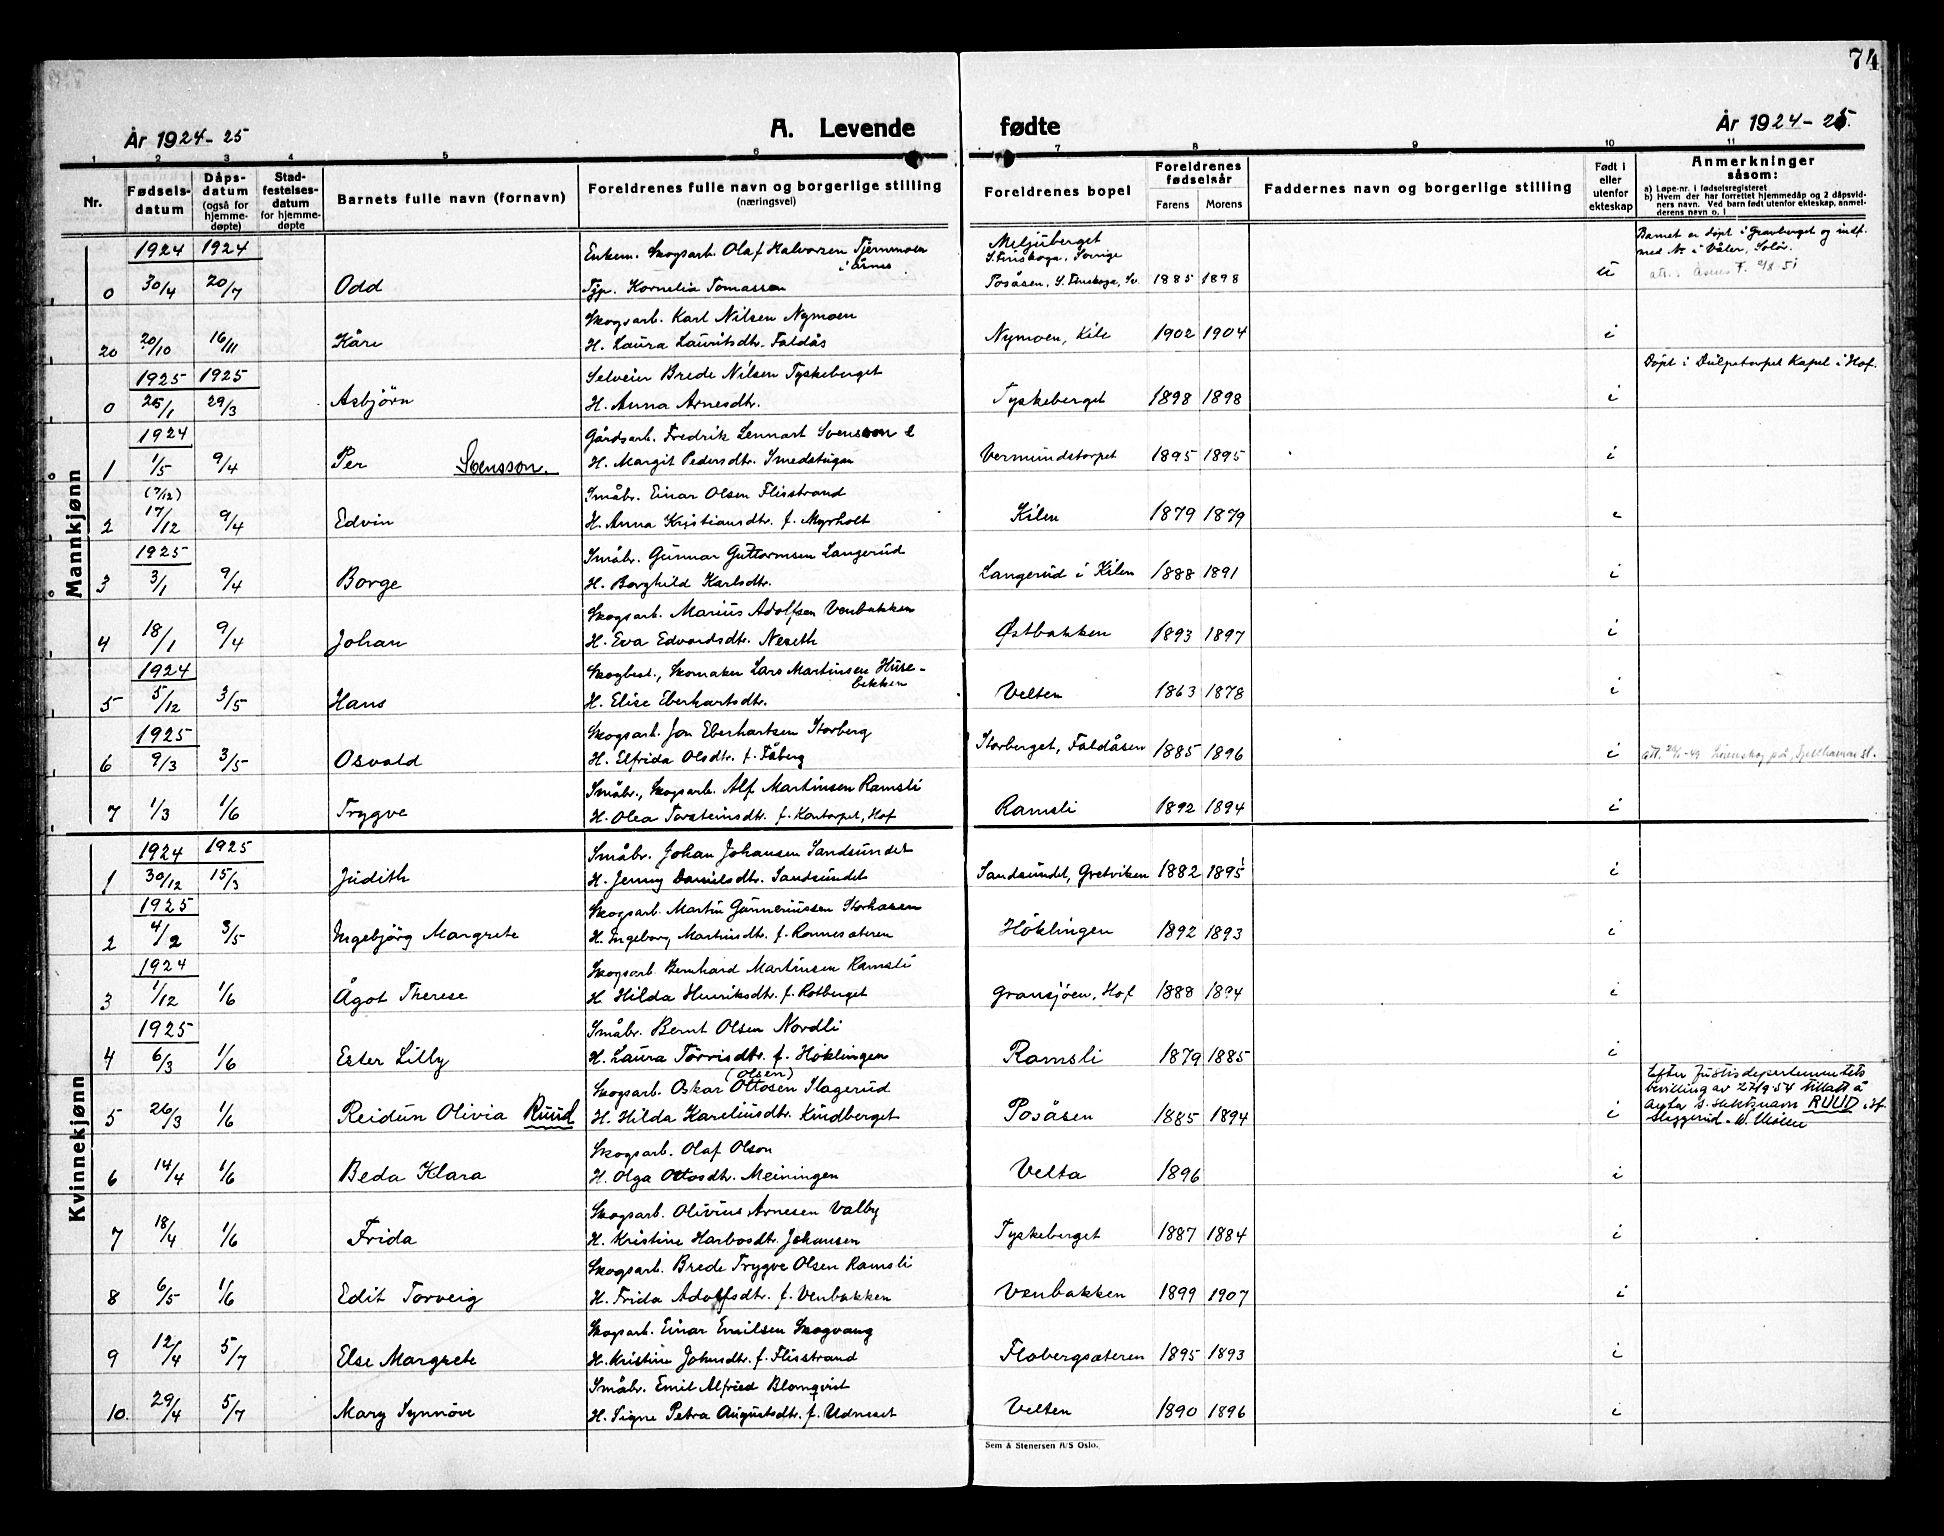 74
År 1924-25 A. Levende fødte År 1924-25.
1 2 3 4 5 6 7 8 9 10 11
Nr. Fødsels-datum Dåps-datum (også for hjemme-døpte) Stad-festelses-datum for hjemme-døpte Barnets fulle navn (fornavn) Foreldrenes fulle navn og borgerlige stilling (næringsvei) Foreldrenes bopel Foreldrenes fødselsår Farens Morens Faddernes navn og borgerlige stilling Født i eller utenfor ekteskap Anmerkninger såsom:
a) Løpe-nr. i fødselsregisteret
b) Hvem der har forrettet hjemmedåp og 2 dåpsvid-
ners navn. Ved barn født utenfor ekteskap, anmel-
derens navn o. l
Mannkjønn
1924 1924 Enkem. Skogsarb. Olaf Halvorsen Tjernmoen i Åsnes Meljuberget S. Finskoga, Sverige Barnet er døpt i Gravberget og indf. med No i Våler, Solør.
0 30/4 20/7 Odd Tjp. Kornelia Tomassen Posåsen, S. Finskoga, Sv. 1885 1898 u att. Åsnes 8/8 51
Skogsarb. Karl Nilsen Nymoen
20 20/10 16/11 Kåre H. Laura Lauritsdtr. Faldås Nymoen, Kile 1902 1904 i
1925 1925 Selveier Brede Nilsen Tyskeberget Døpt i Dulpetorpet Kapel i Hof.
0 25/1 29/3 Asbjörn H. Anna Arnesdtr. Tyskeberget 1898 1898 i
1924 Gårdsarb. Fredrik Lennart Svensson
1 1/5 9/4 Per Svensson. H. Margit Pedersdtr. Smedstugan Vermundstorpet 1895 1895 i
(7/12) Småbr. Einar Olsen Flisstrand
2 17/12 9/4 Edvin H. Anna Kristiansdtr. f. Myrholt Kilen 1879 1879 i
1925 Småbr. Gunnar Guttormsen Langerud
3 3/1 9/4 Borge H. Borghild Karlsdtr. Langerud i Kilen 1888 1891 i
Skogsarb. Marius Adolfsen Venbakken
4 18/1 9/4 Johan H. Eva Edvardsdtr. Neseth Østbakken 1893 1897 i
1924 Skogbest., Skomaker Lars Martinsen Husebekken
5 5/12 3/5 Hans H. Elise Eberhartsdtr. Velten 1863 1878 i
1925 Skogsarb. Jon Eberhartsen Storberg
6 9/3 3/5 Osvald H. Elfrida Olsdtr. f. Fåberg Storberget, Faldåsen 1885 1896 i att.
Småbr., Skogsarb. Alf Martinsen Ramsli
7 1/3 1/6 Trygve H. Olea Torsteinsdtr. f. Kantorpet, Hof Ramsli 1892 1894 i
Kvinnekjønn
1924 1925 Småbr. Johan Johansen Sandsundet
1 30/12 15/3 Judith H. Jenny Danielsdtr. Sandsundet Sandsundet, Gretviken 1882 1895 i
1925 Skogsarb. Martin Gunneriussen Storhasen
2 4/2 3/5 Ingebjörg Margrete H. Ingeborg Martinsdtr. f. Rannesæteren Höklingen 1892 1893 i
1924 Skogsarb. Bernhard Martinsen Ramsli
3 1/12 1/6 Ågot Therese H. Hilda Henriksdtr. f. Rotberget Gransjöen, Hof 1888 1894 i
1925 Småbr. Bernt Olsen Nordli
4 6/3 1/6 Ester Lilly H. Laura Törrisdtr. f. Höklingen Ramsli 1879 1885 i
Skogsarb. Oskar Ottosen (Olsen) Slagerud Efter Justisdepartementets
bevilling av 27/9 54 tillatt å
5 26/3 1/6 Reidun Olivia Ruud H. Hilda Kareliusdtr. Kindberget Posåsen 1885 1894 i anta s. slektsnavn RUUD
Skogsarb. Olaf Olson
6 14/4 1/6 Beda Klara H. Olga Ottosdtr. Meiningen Velta 1896 i
Skogsarb. Olivius Arnesen Valby
7 18/4 1/6 Frida H. Kristine Harbosdtr. Johansen Tyskeberget 1887 1884 i
Skogsarb. Brede Trygve Olsen Ramsli
8 6/5 1/6 Edit Torveig H. Frida Adolfsdtr. f. Venbakken Venbakken 1899 1907 i
Skogsarb. Einar Emilsen Skogvang
9 12/4 5/7 Else Margrete H. Kristine Johnsdtr. f. Flisstrand Flobergsæteren 1895 1893 i
Småbr. Emil Alfried Blomqvist
10. 29/4 5/7 Mary Synnöve H. Signe Petra Augustsdtr. f. Udneset Velten 1890 1896 i
Sem & Stenersen A/S Oslo.